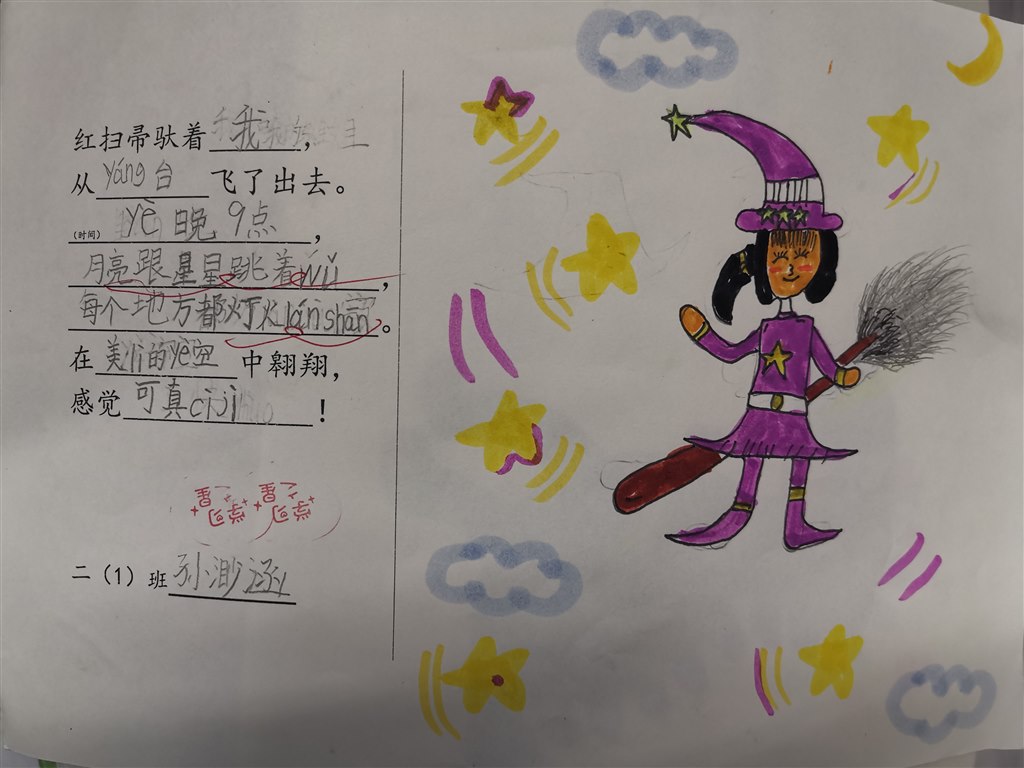 红扫帚驮着 我，
从 yáng台 飞了出去。
(时间) yè晚 9点，
月亮跟星星跳着wǔ，
每个地方都灯火lánshān。
在 美lì的yè空 中翱翔，
感觉 可真cìjī！
二（1）班